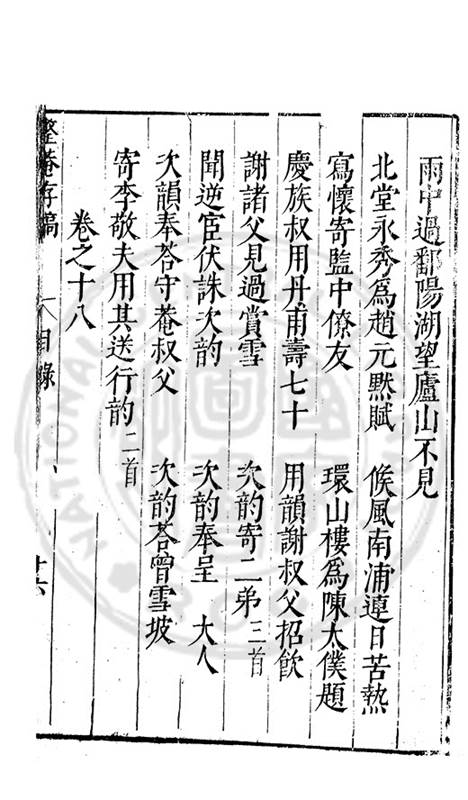 雨中過鄱陽湖望廬山不見
北堂永秀為趙元默賦　候風南浦連日苦熱
寫懷寄監中僚友　環山樓為陳太僕題
慶族叔用丹甫壽七十　用韻謝叔父招飲
謝諸父見過賞雪　次韵寄二弟三首
聞逆宦伏誅次韵　次韵奉呈　大人
次韻奉荅守菴叔父　次韵荅曾雪坡
寄李敬夫用其送行韵二首
卷之十八
整菴存稿　目錄　十六